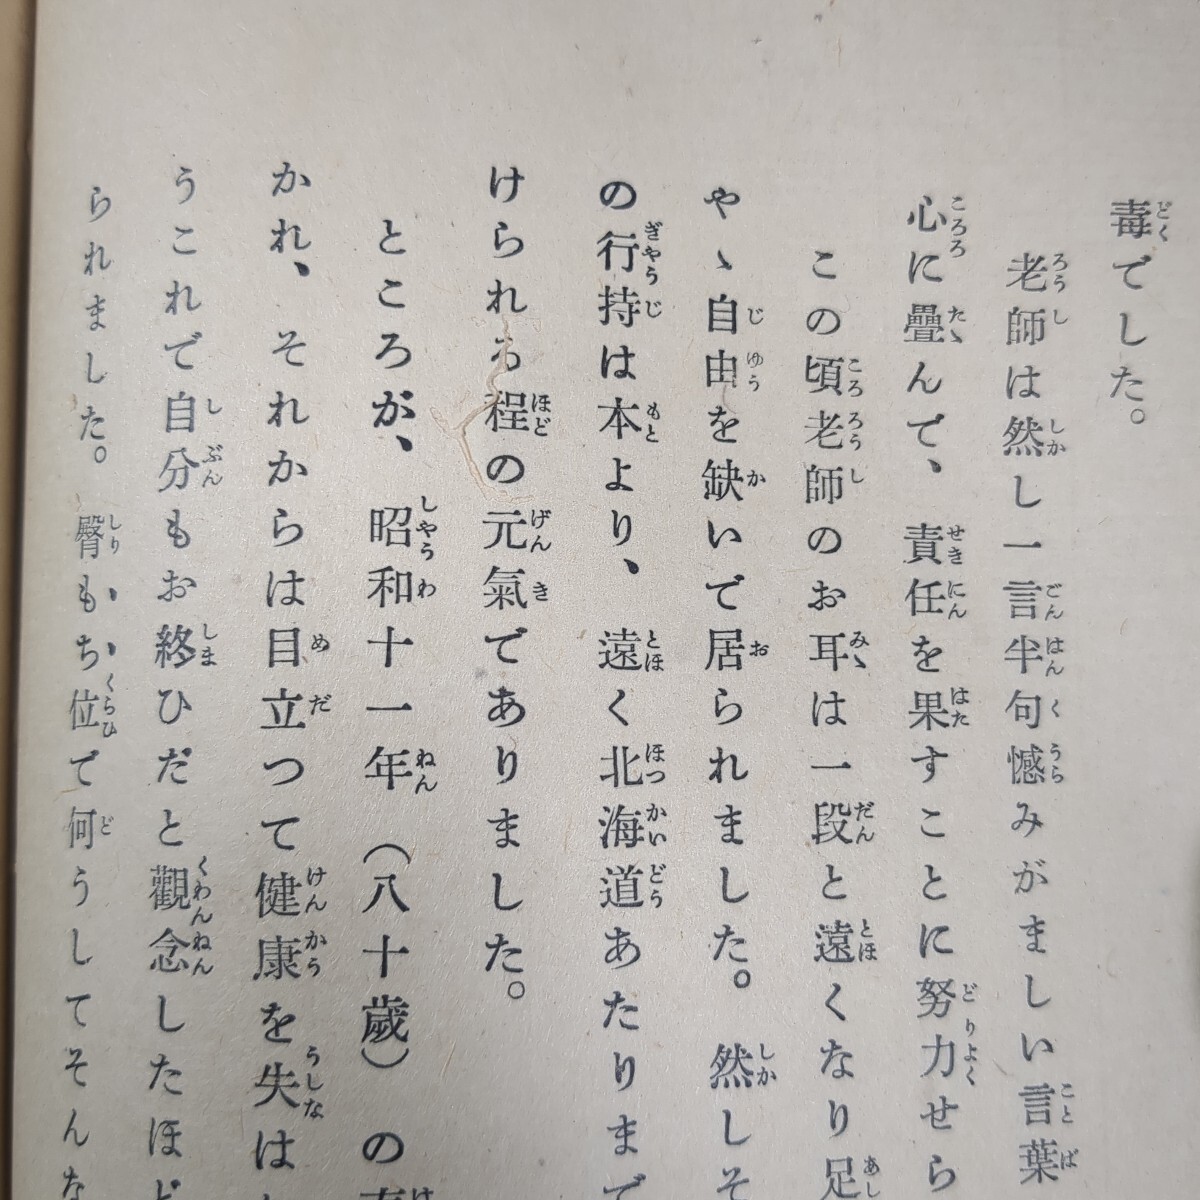 毒でした。
老師は然し一言半句憾みがましい言葉
心に疊んで、責任を果すことに努力せら
この頃老師のお耳は一段と遠くなり足
やゝ自由を缺いで居られました。然しそ
の行持は本より、遠く北海道あたりまで
けられる程の元氣でありました。
ところが、昭和十一年（八十歳）の
かれ、それからは目立つて健康を失は
うこれで自分もお終ひだと觀念したほど
られました。臀もち位で何うしてそんな